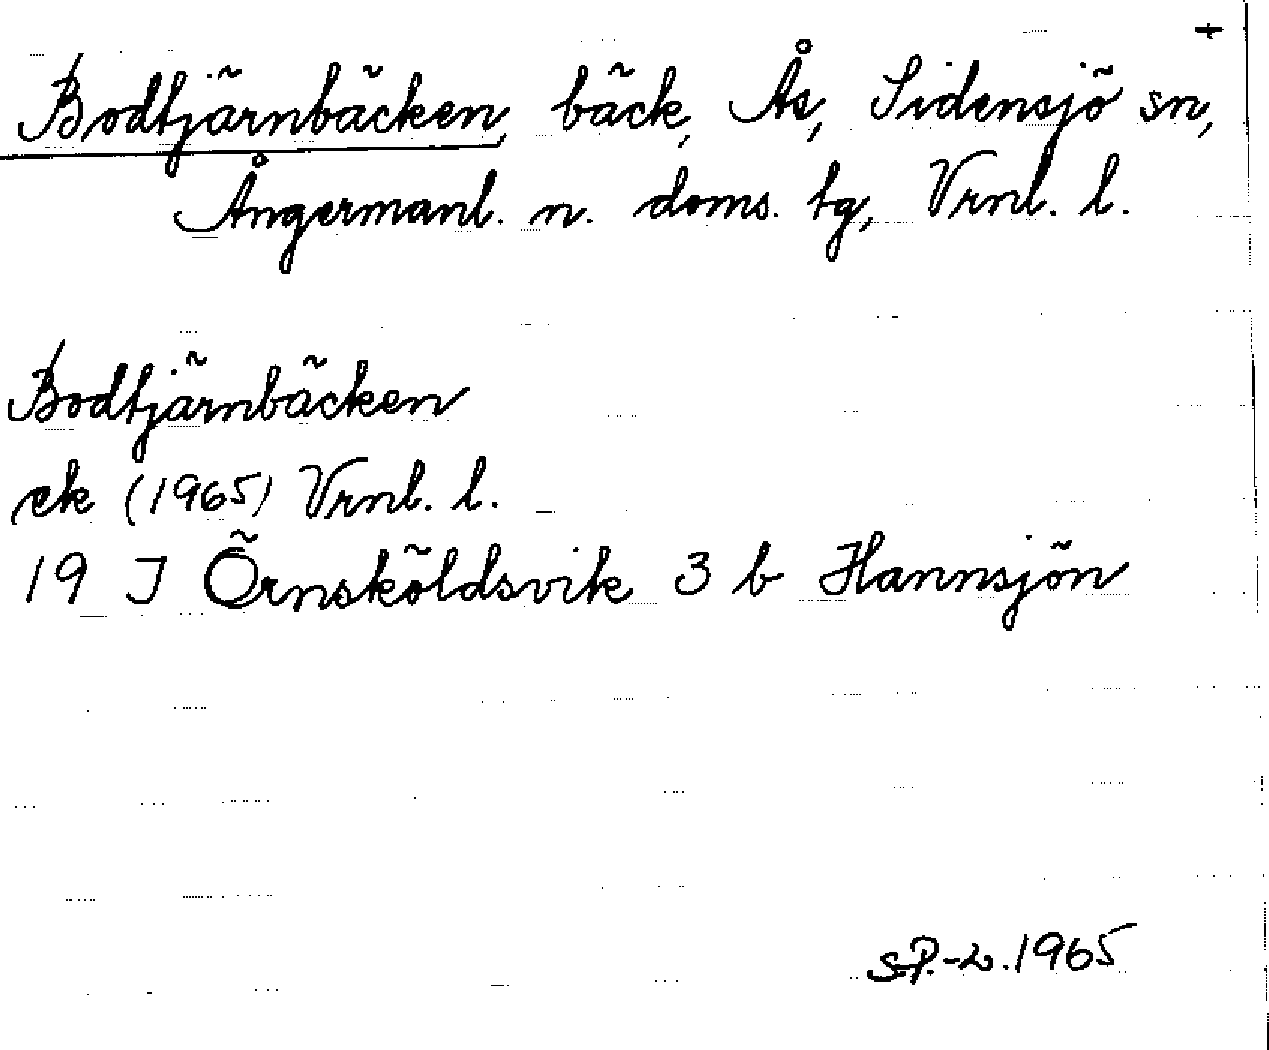 +
Bodtjärnbäcken, bäck, Ås, Sidensjö sn,
Ångermanl. n. doms. tg, Vrnl. l.
Bodtjärnbäcken
ek (1965) Vrnl. l.
19 J Örnsköldsvik 3 b Hannsjön
1965